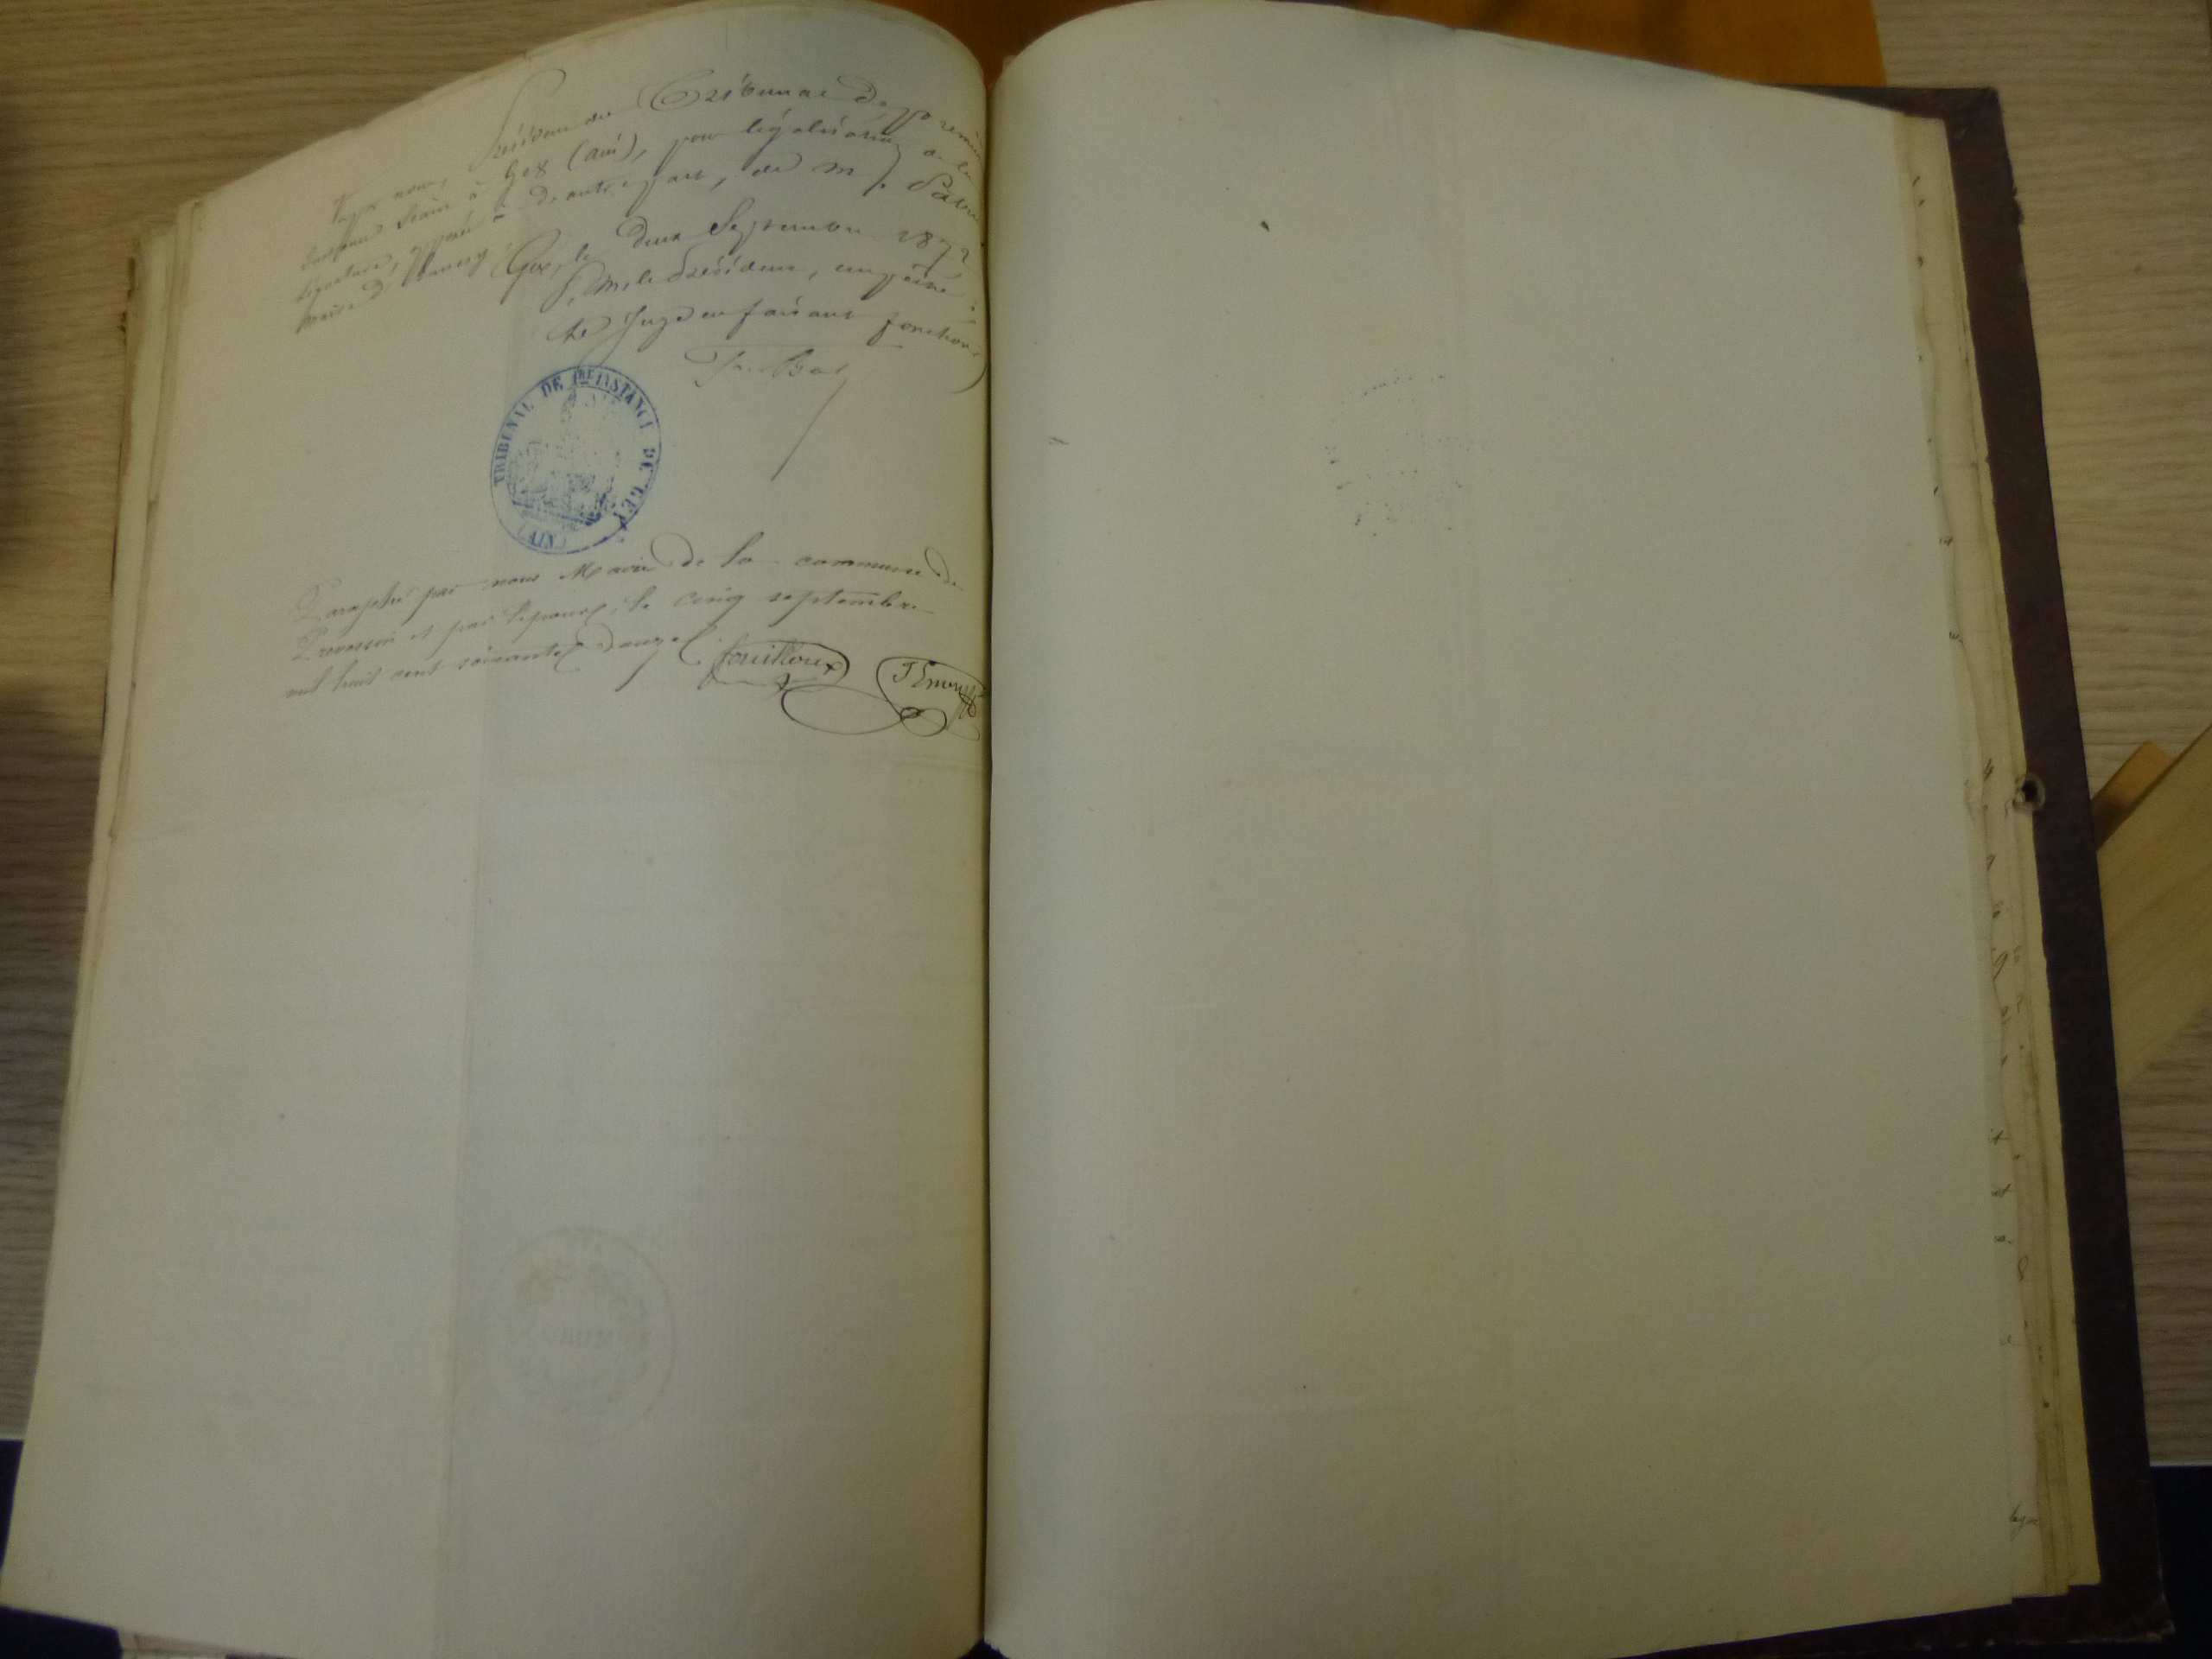 Vu par nous, Président du Tribunal de première
instance séant à Gex (ain), pour légalisation de la
signature, apposée d'autre part, de M.
maire d'Ornex
Gex, le deux Septembre 1872
P. M. le Président, empêché
Le Juge en faisant fonctions
TRIBUNAL DE 1RE INSTANCE DE GEX
(AIN)
Paraphé par nous Maire de la commune de
Prevessin et par l'epoux, le cinq septembre
mil huit cent soixante douze
fouilloux